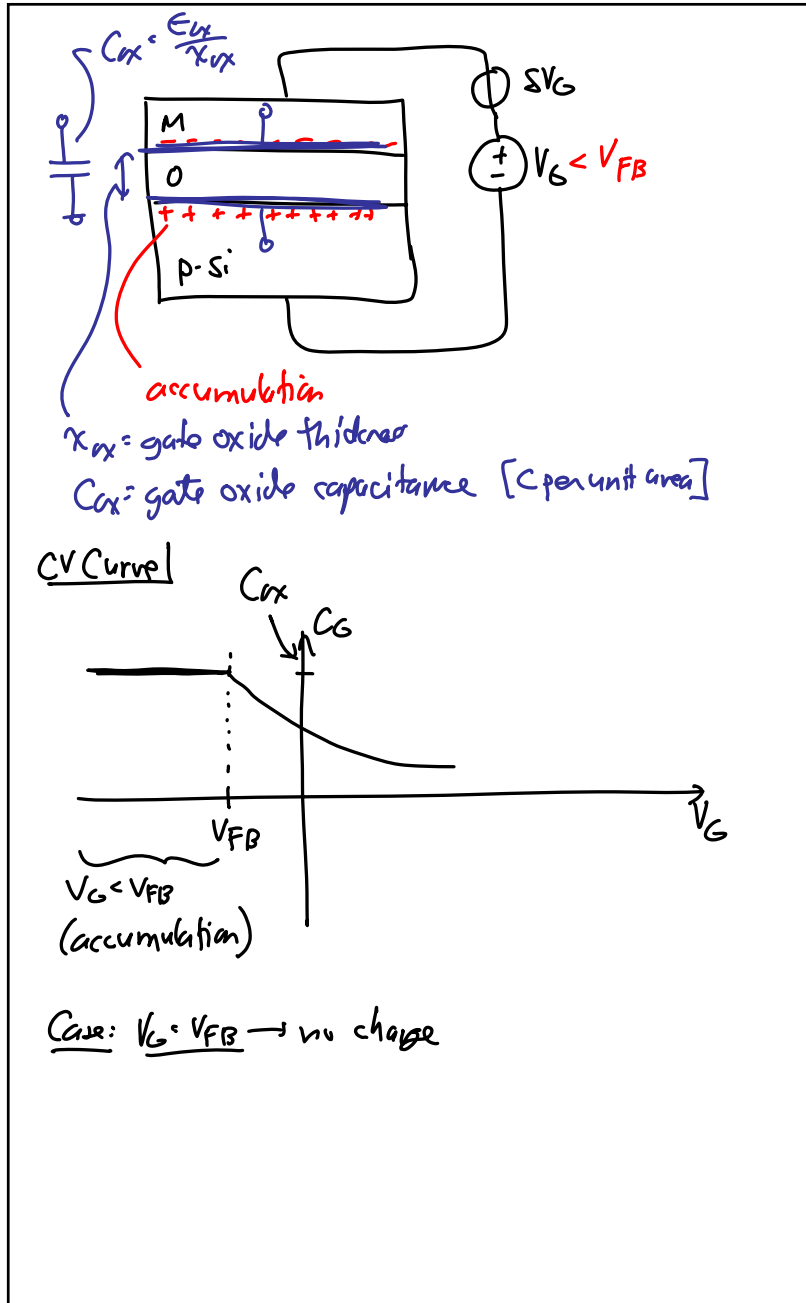 Cox = εox/xox
δVG
M
- - - - - - - -
O
+
-
VG < VFB
+ + + + + + + + ++
p-Si
accumulation
xox = gate oxide thickness
Cox = gate oxide capacitance [C per unit area]
CV Curve
Cox
CG
VG
VFB
VG < VFB
(accumulation)
Case: VG = VFB → no charge